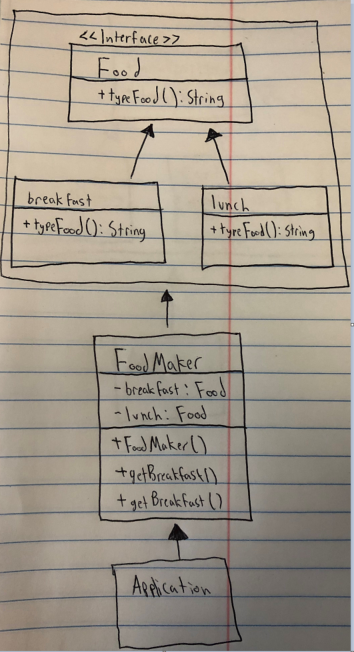 <<Interface>>
Food
+typeFood(): String
breakfast
+typeFood(): String
lunch
+typeFood(): String
FoodMaker
-breakfast: Food
-lunch: Food
+FoodMaker()
+getBreakfast()
+getBreakfast()
Application